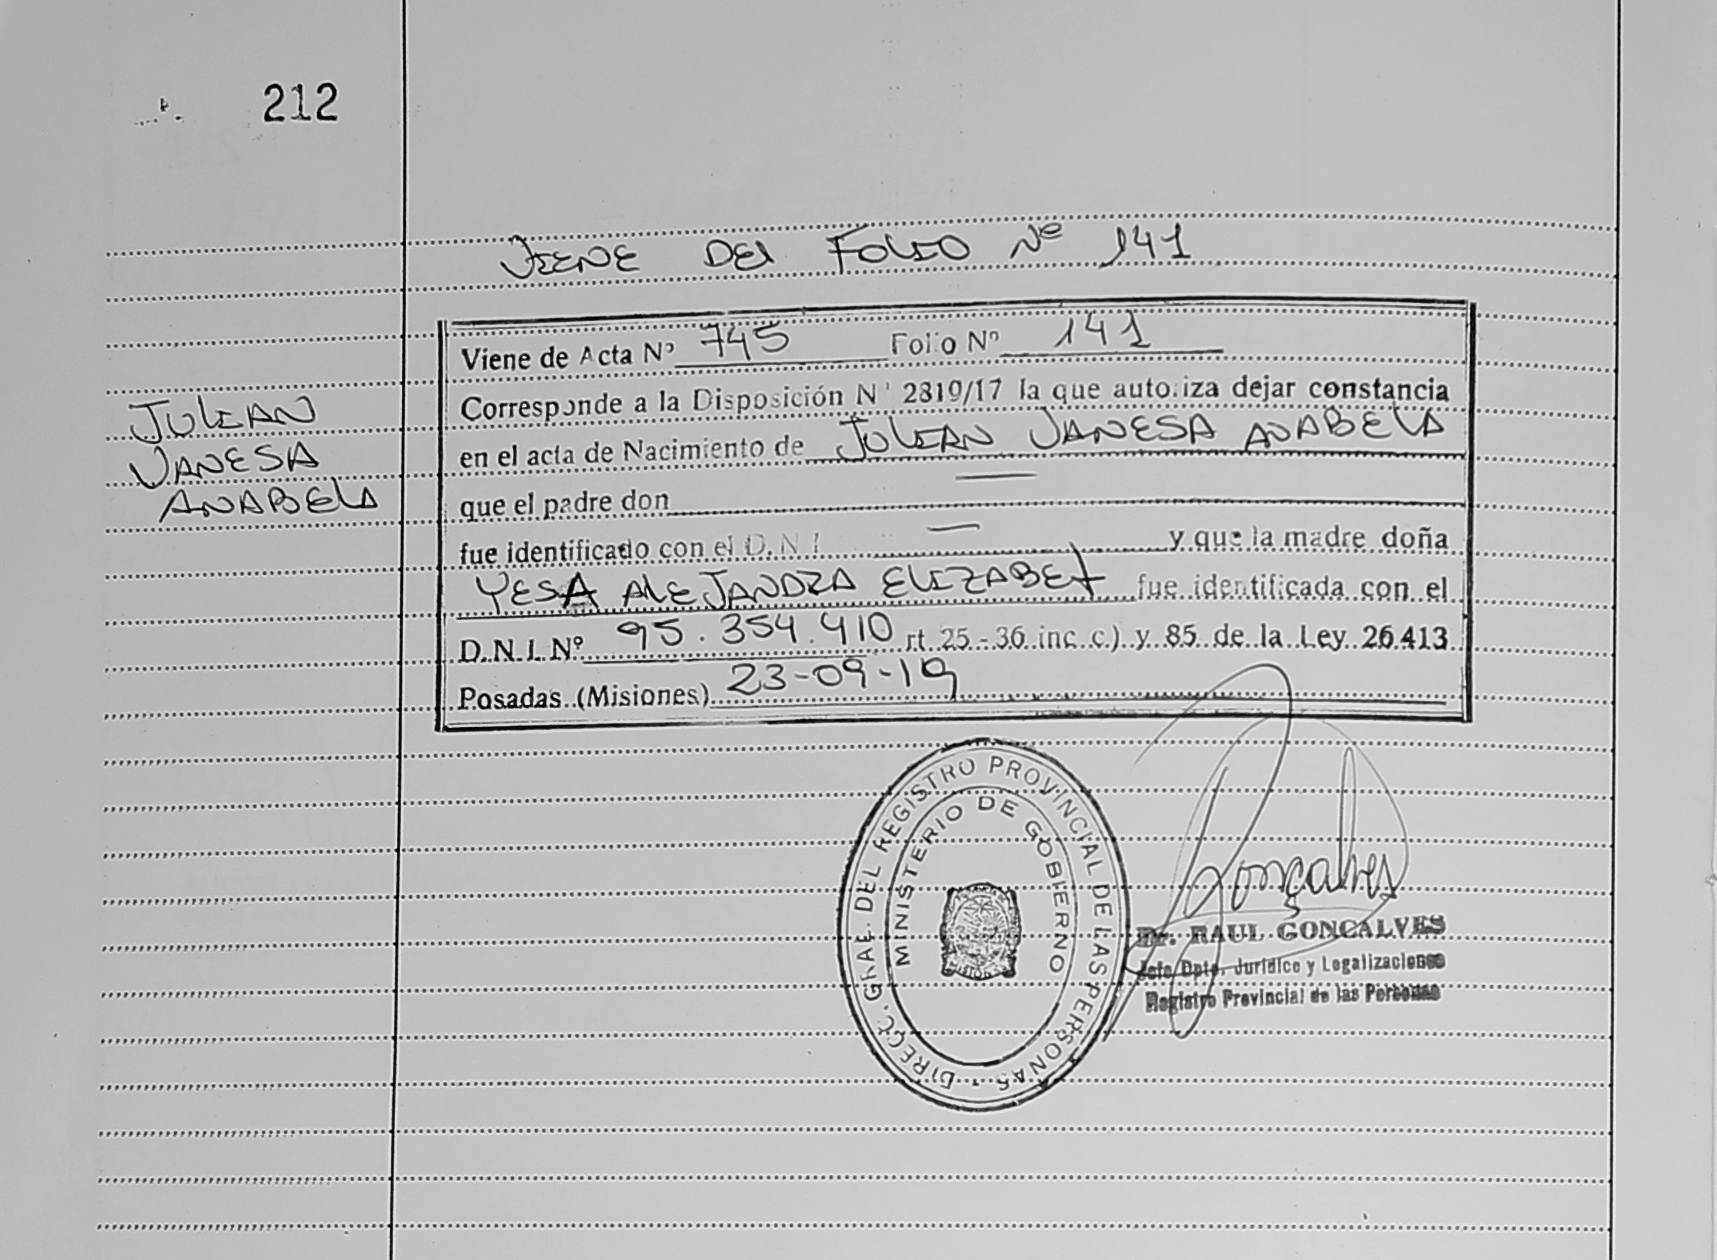 212
VIENE DEL FOLIO Nº 141
Viene de Acta Nº 745 Folio Nº 141
Corresponde a la Disposición Nº 2819/17 la que autoriza dejar constancia
en el acta de Nacimiento de JULIAN VANESA ANABELA
que el padre don —
fue identificado con el D.N.I. — y que la madre doña
YESA ALEJANDRA ELIZABET fue identificada con el
D.N.I. Nº 95.354.410 rt. 25 - 36 inc. c) y 85 de la Ley 26413
Posadas (Misiones) 23-09-19
JULIAN
VANESA
ANABELA
DIRECC. GRAL. DEL REGISTRO PROVINCIAL DE LAS PERSONAS
MINISTERIO DE GOBIERNO
MISIONES
Gonçalves
Dr. RAUL GONCALVES
Jefe Dpto. Jurídico y Legalizaciones
Registro Provincial de las Personas